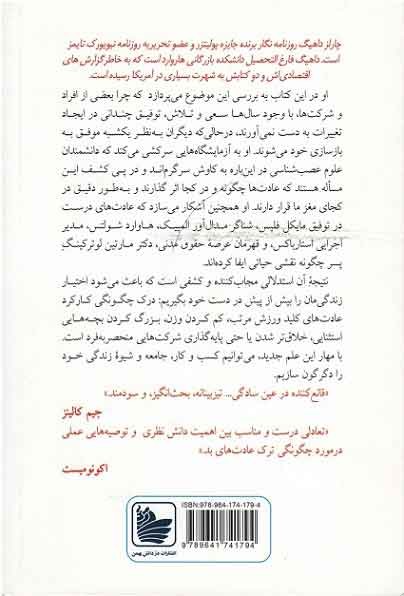 چارلز داهیگ روزنامه نگار برنده جایزه پولیتزر و عضو تحریریه روزنامه نیویورک تایمز
است. داهیگ فارغ التحصیل دانشکده بازرگانی هاروارد است که به خاطر گزارش های
اقتصادی‌اش و دو کتابش به شهرت بسیاری در آمریکا رسیده است.
او در این کتاب به بررسی این موضوع می‌پردازد که چرا بعضی از افراد
و شرکت‌ها، با وجود سال‌ها سعی و تلاش، توفیق چندانی در ایجاد
تغییرات به دست نمی‌آورند، درحالی‌که دیگران به‌نظر یکشبه موفق به
بازسازی خود می‌شوند. او به آزمایشگاه‌هایی سرکشی می‌کند که دانشمندان
علوم عصب‌شناسی در این‌باره به کاوش سرگرم‌اند و در پی کشف این
مسأله هستند که عادت‌ها چگونه و در کجا اثر گذارند و به‌طور دقیق در
کجای مغز ما قرار دارند. او همچنین آشکار می‌سازد که عادت‌های درست
در توفیق مایکل فلپس، شناگر مدال‌آور المپیک، هاوارد شولتس، مدیر
اجرایی استارباکس، و قهرمان عرصهٔ حقوق مدنی، دکتر مارتین لوترکینگ
پسر چگونه نقشی حیاتی ایفا کرده‌اند.
نتیجهٔ آن استدلالی مجاب‌کننده و کشفی است که باعث می‌شود اختیار
زندگی‌مان را بیش از پیش در دست خود بگیریم: درک چگونگی کارکرد
عادت‌های کلید ورزش مرتب، کم کردن وزن، بزرگ کردن بچه‌هایی
استثنایی، خلاق‌تر شدن یا حتی پایه‌گذاری شرکت‌هایی منحصربه‌فرد است.
با مهار این علم جدید، می‌توانیم کسب و کار، جامعه و شیوهٔ زندگی خود
را دگرگون سازیم.
«قانع‌کننده در عین سادگی... تیزبینانه، بحث‌انگیز، و سودمند.»
جیم کالینز
«تعادلی درست و مناسب بین اهمیت دانش نظری و توصیه‌هایی عملی
درمورد چگونگی ترک عادت‌های بد.»
اکونومیست
ISBN:978-964-174-179-4
9 789641 741794
انتشارات در دانش بهمن